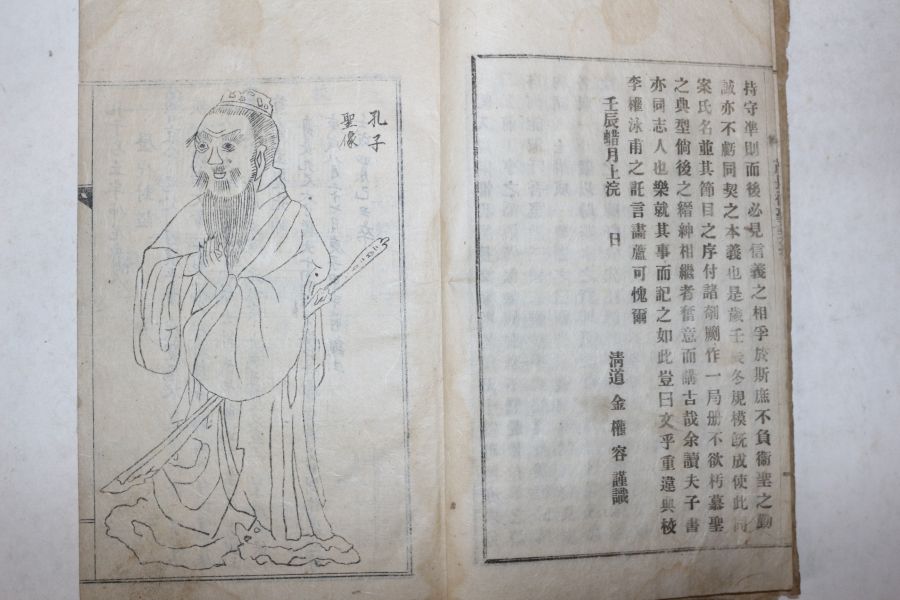 持守準則而後必見信義之相孚於斯庶不負衛聖之勤
誠亦不虧同契之本義也是歲壬辰冬規模旣成使此同
案氏名並其節目之序付諸剞劂作一局册不欲朽慕聖
之典型倘後之縉紳相繼者奮意而講古哉余讀夫子書
亦同志人也樂就其事而記之如此豈曰文乎重違與校
李權泳甫之託言畫蘆可愧爾
壬辰蜡月上浣 日
淸道 金權容 謹識
孔子
聖像